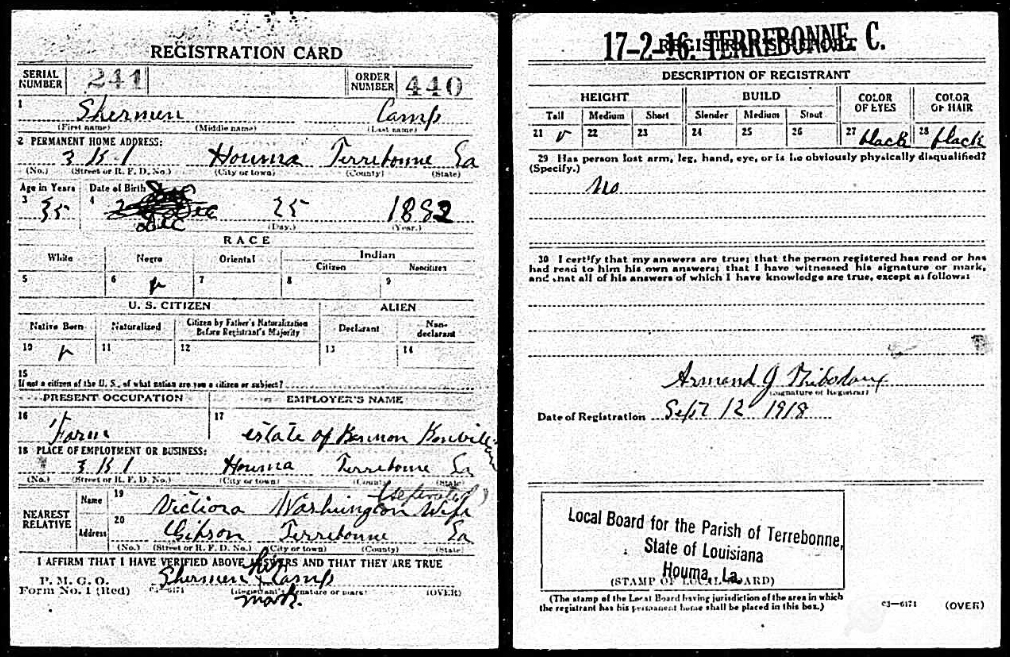 REGISTRATION CARD
SERIAL NUMBER 241 ORDER NUMBER 440
1 Shermen Camp
(First name) (Middle name) (Last name)
2 PERMANENT HOME ADDRESS:
Houma Terrebonne La
(No.) (Street or R. F. D. No.) (City or town) (County) (State)
Age in Years Date of Birth
3 35 4 Dec 25 1882
(Day.) (Year.)
RACE
White Negro Oriental Indian
Citizen Noncitizen
5 6 7 8 9
U. S. CITIZEN ALIEN
Native Born Naturalized Citizen by Father's Naturalization Before Registrant's Majority Declarant Non-declarant
10 11 12 13 14
15
If not a citizen of the U. S., of what nation are you a citizen or subject?
PRESENT OCCUPATION EMPLOYER'S NAME
16 Farm 17 estate of
18 PLACE OF EMPLOYMENT OR BUSINESS:
Houma Terrebonne La
(No.) (Street or R. F. D. No.) (City or town) (County) (State)
NEAREST RELATIVE Name 19 Victiora Washington (seperated) Wife
Address 20 Gibson Terrebonne La
(No.) (Street or R. F. D. No.) (City or town) (County) (State)
I AFFIRM THAT I HAVE VERIFIED ABOVE ANSWERS AND THAT THEY ARE TRUE
P. M. G. O.
Form No. 1 (Red) c3—6171 Shermen his x Camp mark.
(Registrant's signature or mark) (OVER)
17-2-16. TERREBONNE, C.
REGISTRAR'S REPORT
DESCRIPTION OF REGISTRANT
HEIGHT BUILD COLOR OF EYES COLOR OF HAIR
Tall Medium Short Slender Medium Stout
21 22 23 24 25 26 27 black 28 black
29 Has person lost arm, leg, hand, eye, or is he obviously physically disqualified?
(Specify.)
No
30 I certify that my answers are true; that the person registered has read or has
had read to him his own answers; that I have witnessed his signature or mark,
and that all of his answers of which I have knowledge are true, except as follows:
Armand J Thibodaux
(Signature of Registrar)
Date of Registration Sept 12 1918
Local Board for the Parish of Terrebonne,
State of Louisiana
Houma, La.
(STAMP OF LOCAL BOARD)
(The stamp of the Local Board having jurisdiction of the area in which
the registrant has his permanent home shall be placed in this box.)
c3—6171 (OVER)